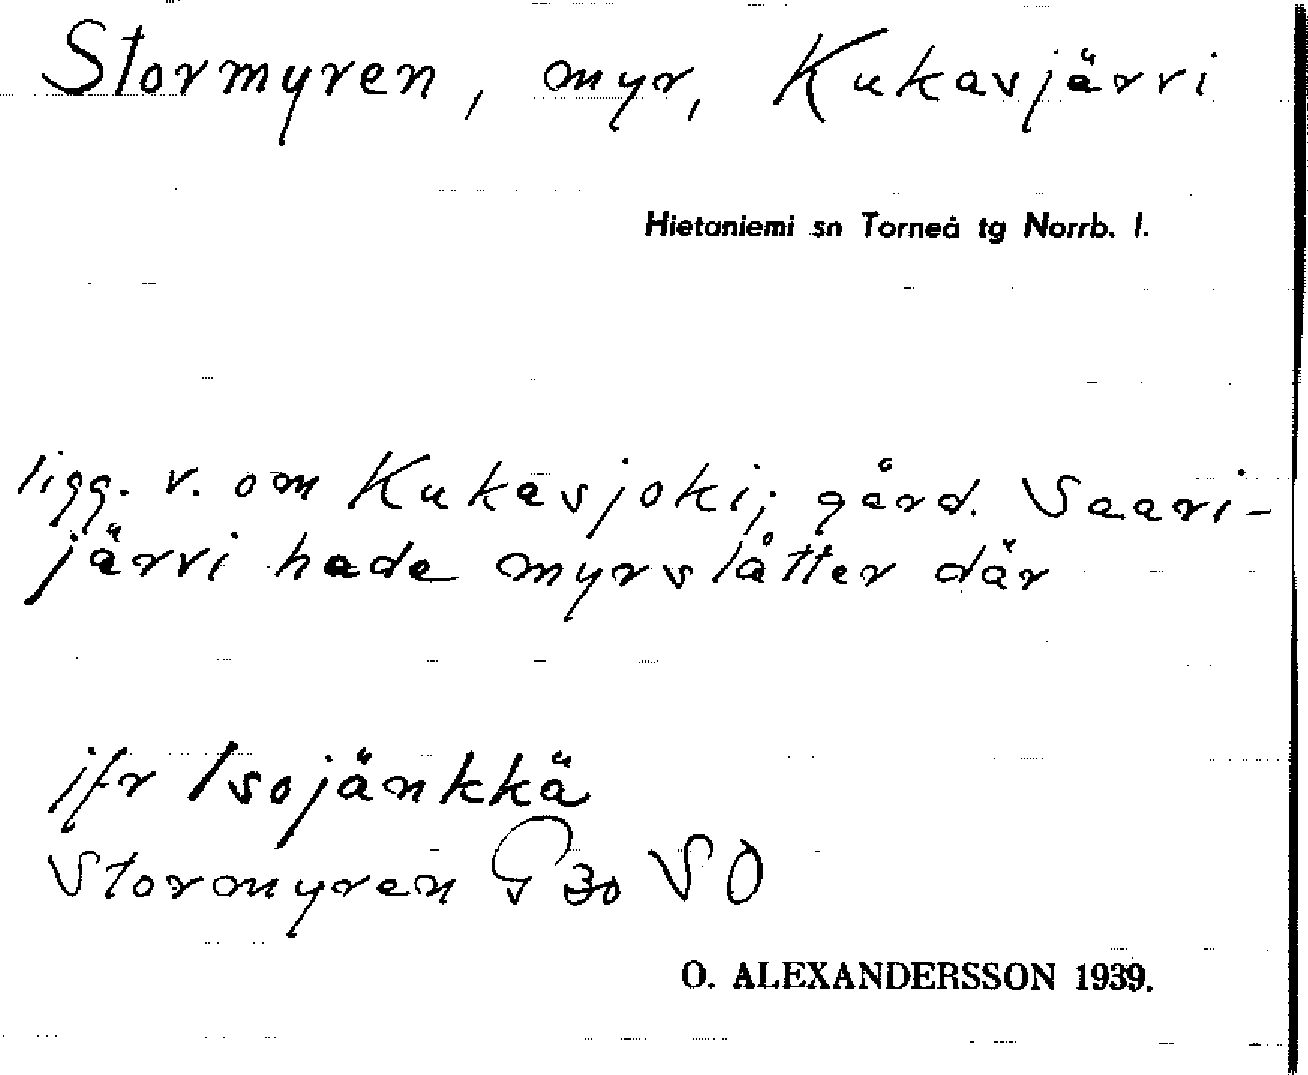 Stormyren, myr, Kukasjärvi
Hietaniemi sn Torneå tg Norrb. l.
ligg. v. om Kukasjoki; gård. Saari-
järvi hade myrslåtter där
jfr Isojänkkä
Stormyren G 30 SO
O. ALEXANDERSSON 1939.